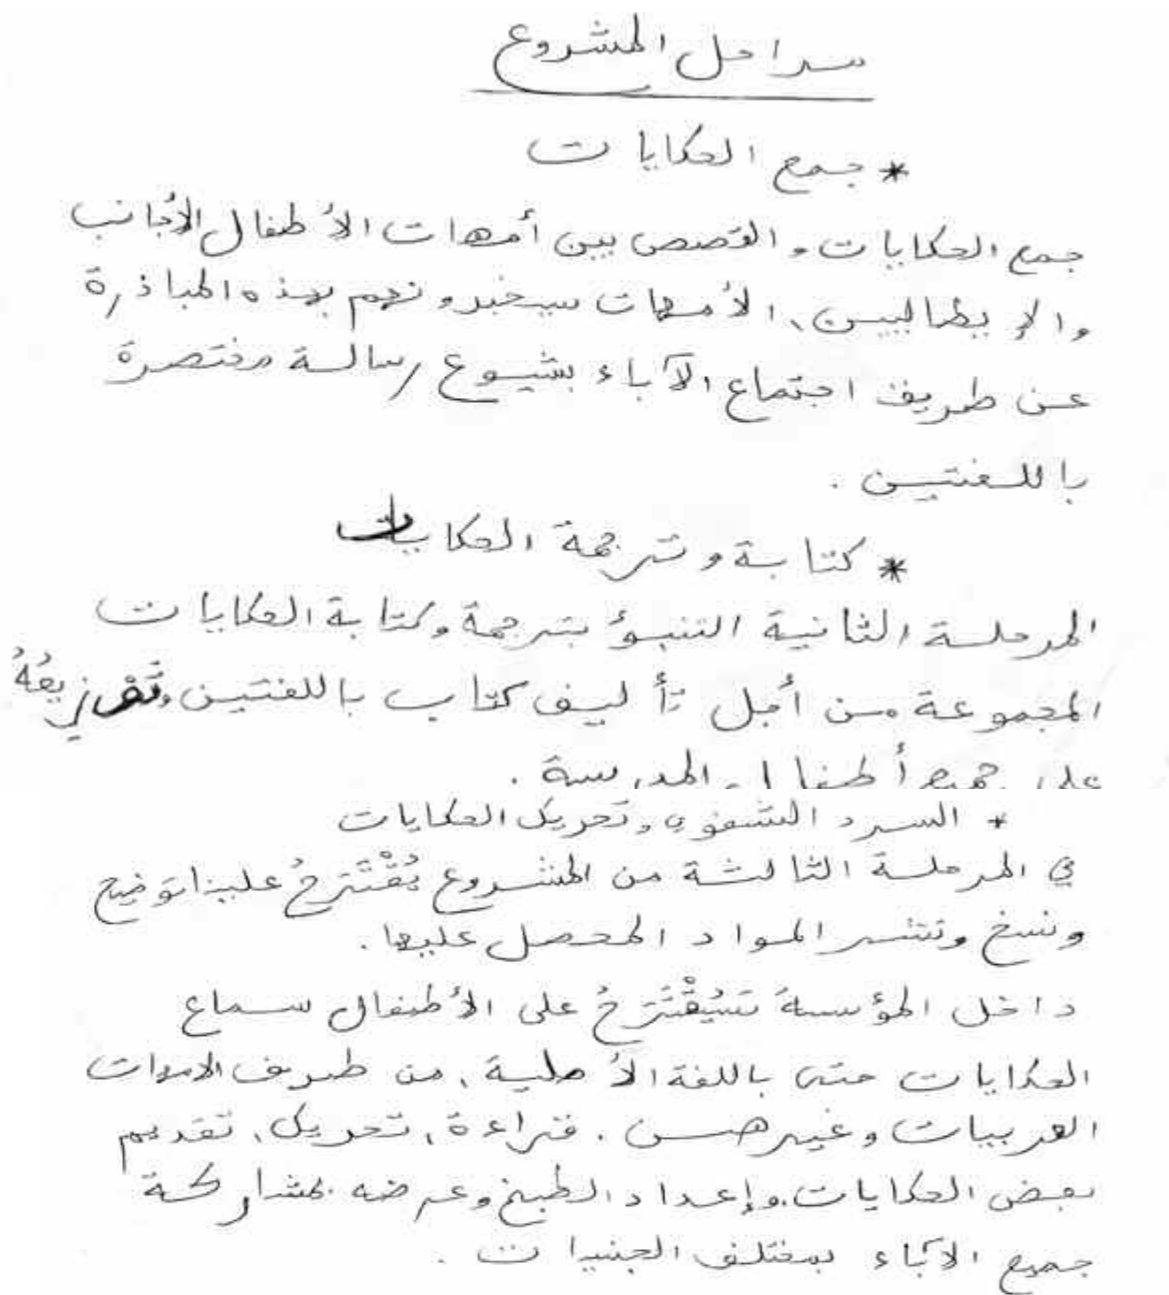 مراحل المشروع
* جمع الحكايات
جمع الحكايات والقصص بين أمهات الأطفال الأجانب
والإيطاليين، الأمهات سيخبرونهم بهذه المباذرة
عن طريق اجتماع الآباء بشيوع رسالة مختصرة
باللغتين .
* كتابة وترجمة الحكايات
المرحلة الثانية التنبؤ بترجمة وكتابة الحكايات
المجموعة من أجل تأليف كتاب باللغتين وتوزيعُهُ
على جميع أطفال المدرسة .
* السرد الشفوي وتحريك الحكايات
في المرحلة الثالثة من المشروع يُقْتَرَحُ علينا توضيح
ونسخ ونشر المواد المحصل عليها .
داخل المؤسسة سَيُقْتَرَحُ على الأطفال سماع
الحكايات حتى باللغة الأصلية، من طرف الامهات
العربيات وغيرهن . قراءة، تحريك، تقديم
بعض الحكايات. وإعداد الطبخ وعرضه بمشاركة
جميع الآباء بمختلف الجنسيات .